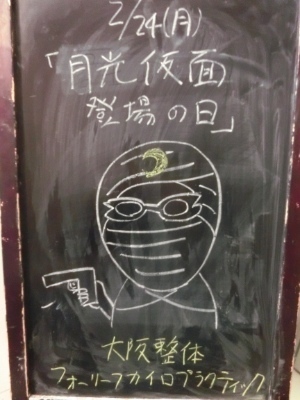 2/24(月)
「月光仮面
登場の日」
大阪整体
フォーリーフカイロプラクティック